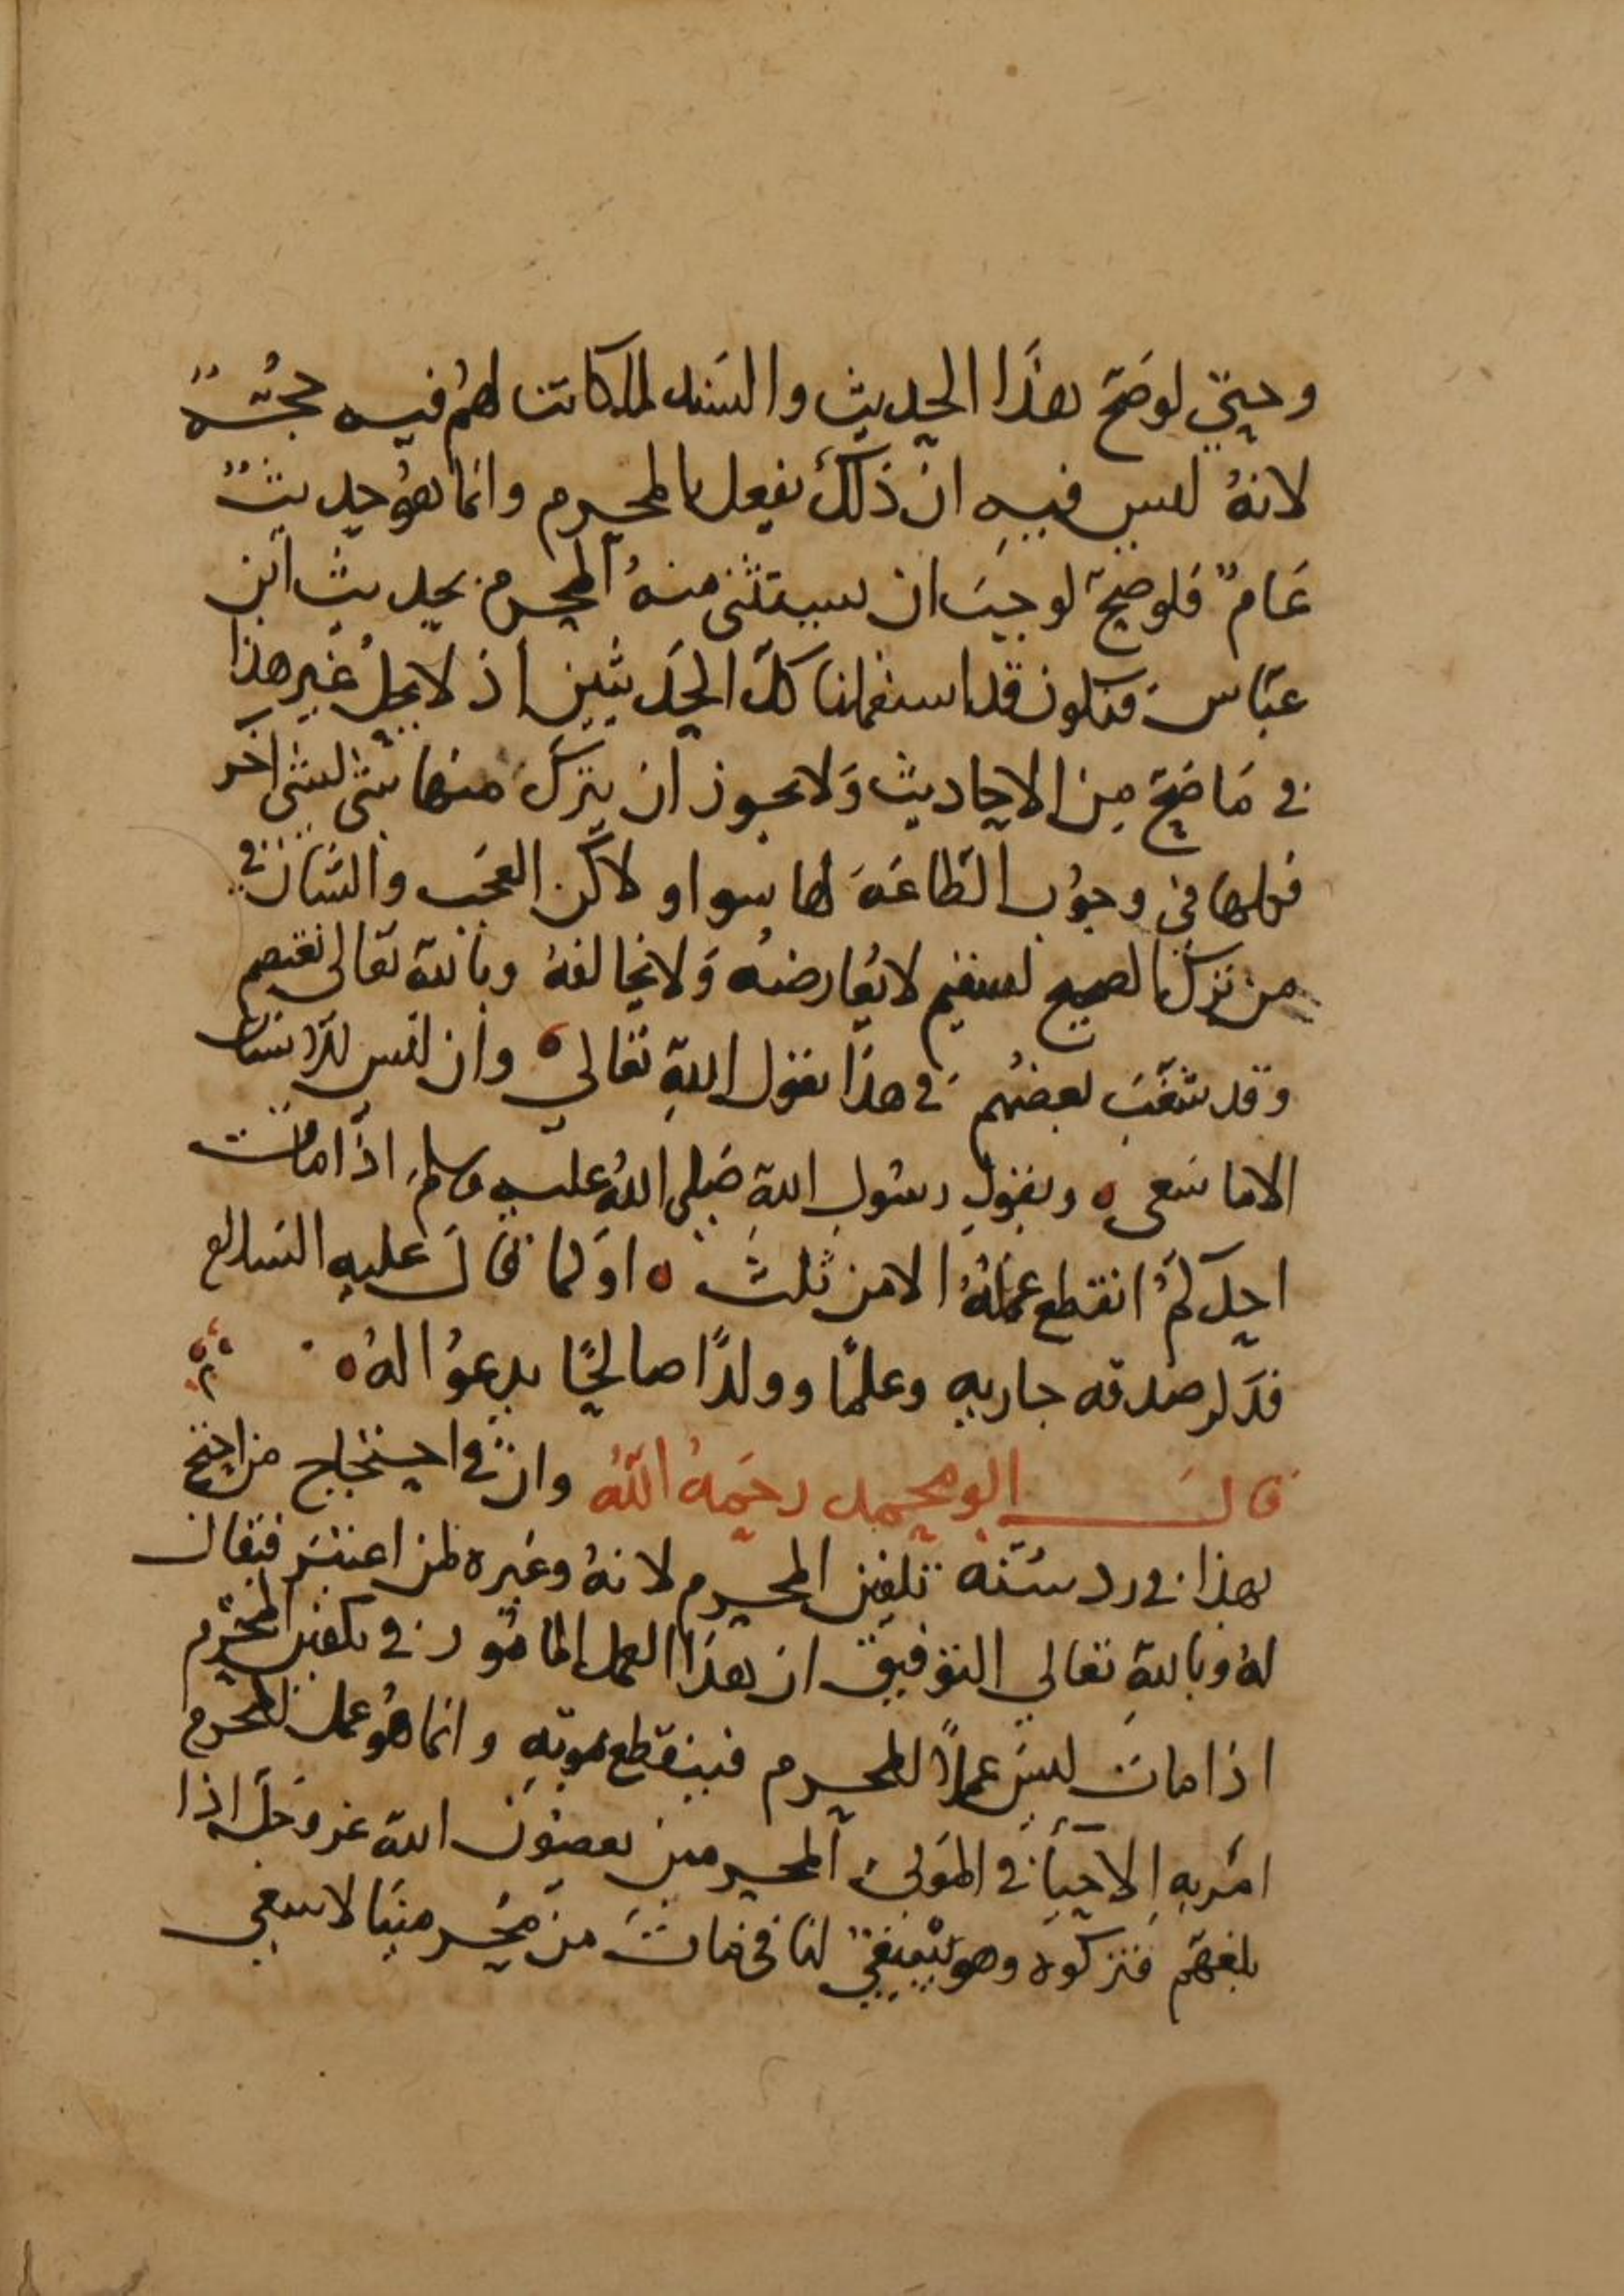 وحتى لو صَحّ هذَا الحديث والسَند لما كانت لهُم فيه حجُةٌ
لانهُ ليس فيهِ ان ذلكَ يفعل بالمحرم وانما هوُ حديثٌ
عَامٌ فلو صحّ لوجبَ ان يستثنى منهُ المحرم بحديث ابن
عبّاس فنكون قد استعملنا كلّ الحَديثين اذ لا يحلُ غير هذا
في مَا صَحّ مِن الاحاديث وَلا يجوز ان يتركَ منها شى لشى اخر
فكلها في وجوُب الطَاعَة لها سوا ولاكن العَجَب والشان في
من تركَ الصحيح لسقيم لا يُعارضُه وَلا يخالفهُ وبالله تعَالى نعتصم
وقد شغَبَ بعضُهم في هذا بقول اللهِ تعالي وان ليس للانسان
الا ما سَعى وبقولِ رسُول اللهِ صَلى اللهُ عليه وسلم اذا مات
احدكمُ انقطع عمَلهُ الا من ثلث او كما قالَ عليهِ السَلام
فذكر صدقه جاريه وعلمًا وولدًا صالحًا يدعوُا لهُ
قالَ ابو محمد رحمَهُ اللهُ وان في احتجاج من احتج
بهذا في رد سُنّه تكفين المحرم لانهُ وغيره لمن اعتبَر فيقال
لهُ وباللهِ تعالي التوفيق ان هذَا العمل الماثور في تكفين المحرم
اذا ماتَ ليسَ عملًا للمحرم فينقطع بموتهِ وانما هُو عمل للمحرم
امَر بهِ الاحيآء في الموتى المحرمين يعصوُن الله عز وَجلّ اذا
بلغهَم فتركوه وهو ينبغي لنا في من مات من محرمينا لا ينبغي